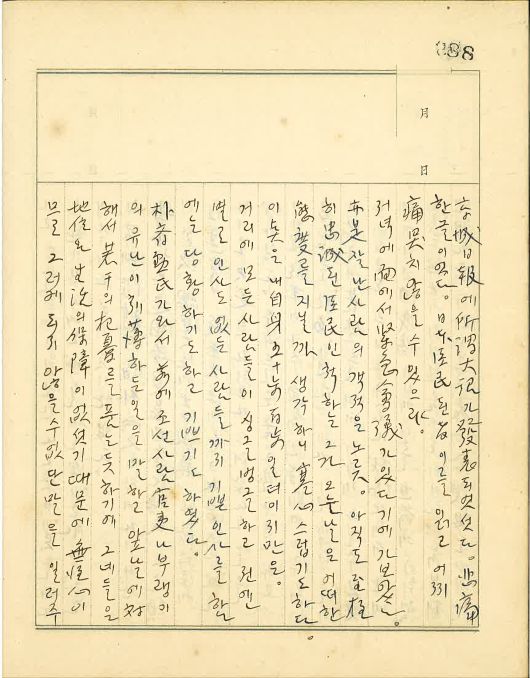 88
月
日
京城日報에 所謂 大詔가 發表되엿섯다. 悲痛
한 글이엿다. 日本臣民된 者 이 글을 읽고 어찌
痛哭치 않을 수 있으랴.
저녁에 面에서 緊急會議가 있다기에 가보앗슴.
亦是 잘난 사람의 객적은 노릇. 아직도 至極
히 忠誠된 臣民인 척하는 그가 오눌날은 어떠한
態度를 지닐까 생각하니 寒心스럽기도 하다.
이 못은 내 自身 五十步百步일 터이지만은.
거리에 모든 사람들이 싱글벙글하고 전엔
별로 인사도 없는 사람들끼리 기쁜 인사를 할
에는 당황하기도 하고 기쁘기도 하엿다.
朴容 氏가 와서 前에 조선사람 官吏나부랭이
의 유난이 하든 일을 말하고 앞날에 対
해서 若干의 杞憂를 품는 듯하기에 그네들은
地位와 生活의 保障이 없섯기 때문에 無理이
므로 그러케 되지 않을 수 없단 말을 일러주